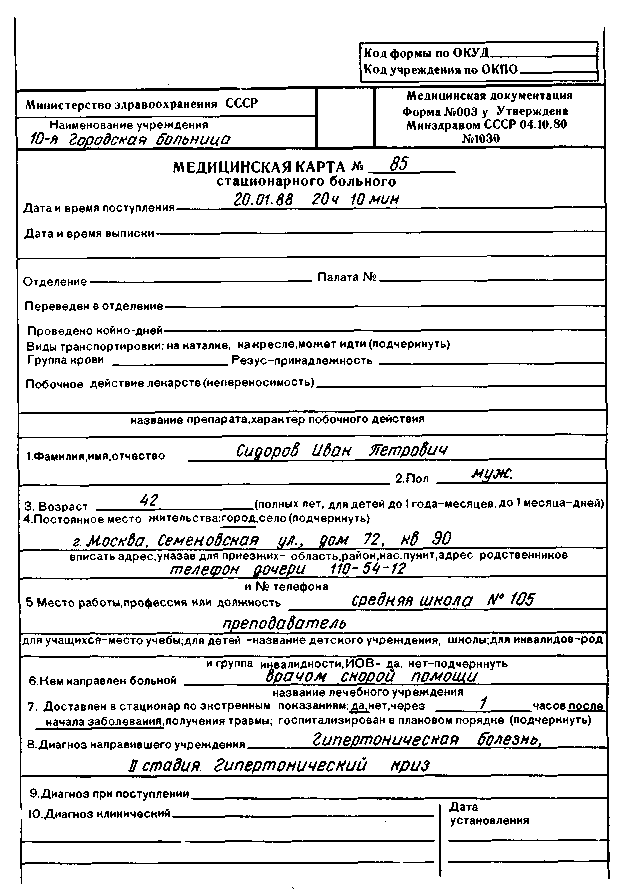 Код формы по ОКУД
Код учреждения по ОКПО
Министерство здравоохранения СССР
Наименование учреждения
10-я Городская больница
Медицинская документация
Форма №003 у Утверждена
Минздравом СССР 04.10.80
№1030
МЕДИЦИНСКАЯ КАРТА № 85
стационарного больного
Дата и время поступления 20.01.88 20ч 10 мин
Дата и время выписки
Отделение Палата №
Переведен в отделение
Проведено койно-дней
Виды транспортировки: на каталке, на кресле, может идти (подчеркнуть)
Группа крови Резус-принадлежность
Побочное действие лекарств (непереносимость)
название препарата, характер побочного действия
1.Фамилия, имя, отчество Сидоров Иван Петрович
2.Пол муж.
3. Возраст 42 (полных лет, для детей до 1 года-месяцев, до 1 месяца-дней)
4.Постоянное место жительства: город, село (подчеркнуть)
г. Москва, Семеновская ул., дом 72, кв 90
вписать адрес, указав для приезжих- область, район, нас. пункт, адрес родственников
телефон дочери 110-54-12
и № телефона
5 Место работы, профессия или должность средняя школа № 105
преподаватель
для учащихся-место учебы; для детей -название детского учреждения, школы; для инвалидов-род
и группа инвалидности, ИОВ- да, нет-подчеркнуть
6.Кем направлен больной врачом скорой помощи
название лечебного учреждения
7. Доставлен в стационар по экстренным показаниям: да, нет, через 1 часов после
начала заболевания, получения травмы; госпитализирован в плановом порядке (подчеркнуть)
8.Диагноз направившего учреждения Гипертоническая болезнь,
II стадия Гипертонический криз
9.Диагноз при поступлении
10.Диагноз клинический
Дата
установления